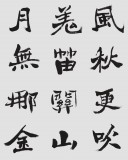 風秋更吹
羌笛關山
月無那金